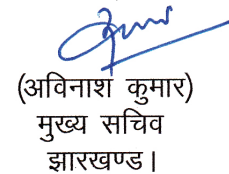 (अविनाश कुमार)
मुख्य सचिव
झारखण्ड।